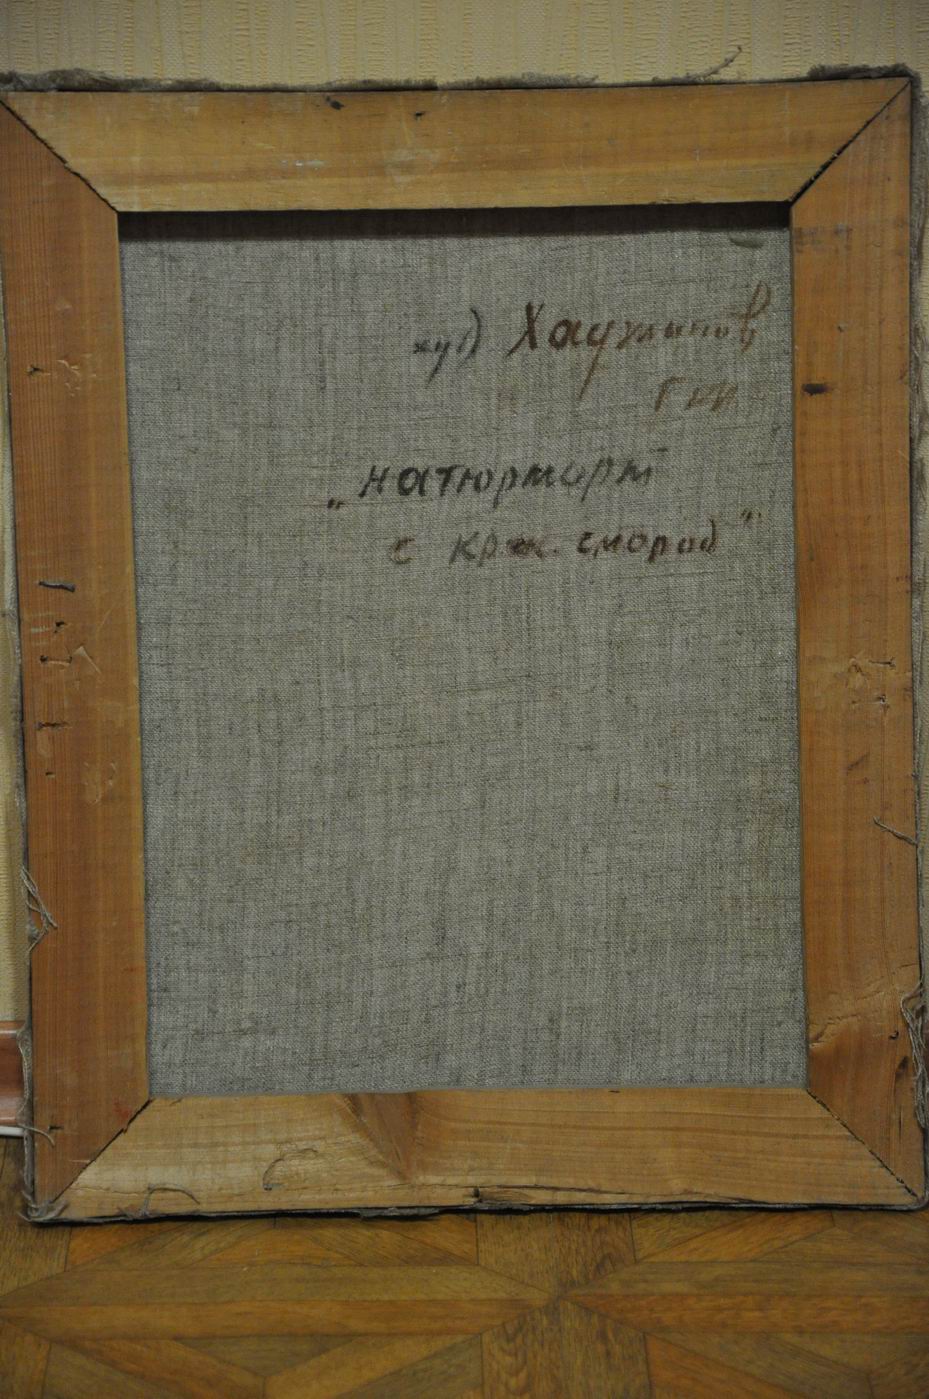 худ Хаджинов
Г И
„натюрморт
с крж. смород"